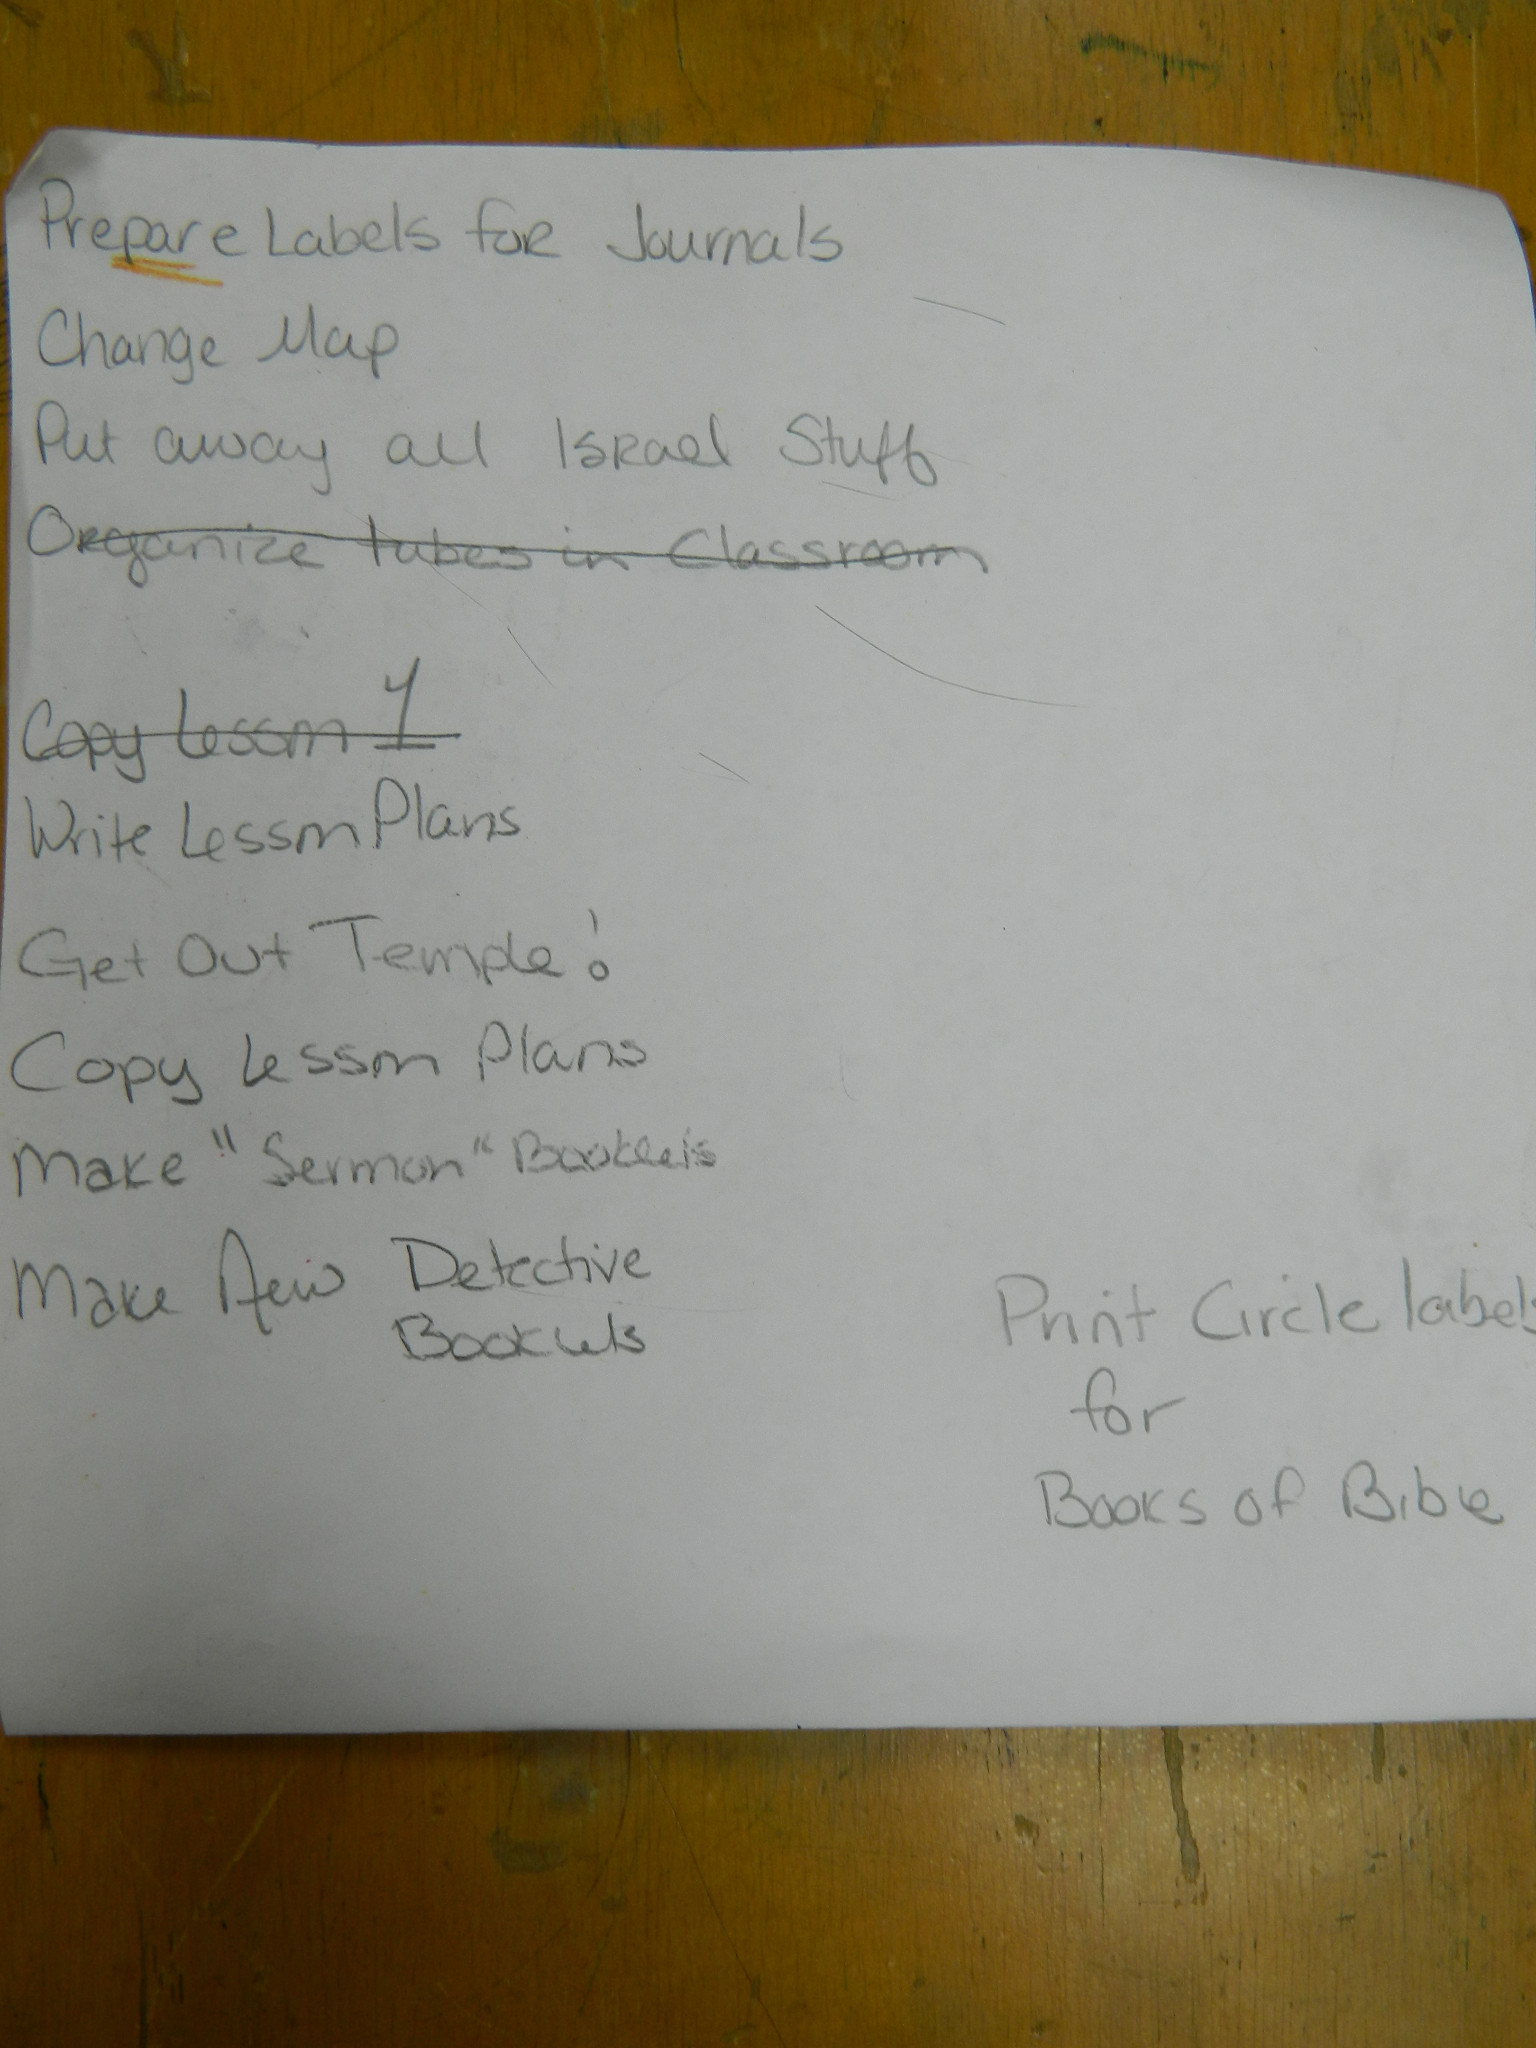 Prepare Labels for Journals
Change Map
Put away all Israel Stuff
Organize tubes in Classroom
Copy Lesson 1
Write Lesson Plans
Get Out Temple!
Copy Lesson Plans
Make "Sermon" Booklets
Make New Detective
Booklets
Print Circle labels
for
Books of Bible